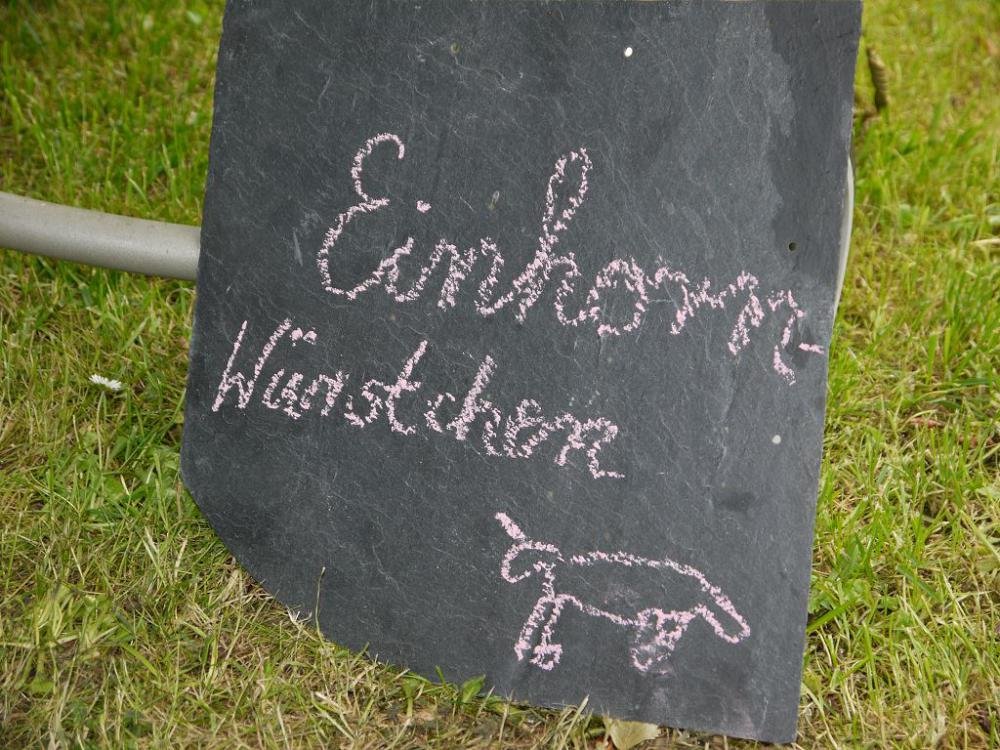 Einhorn-
Würstchen